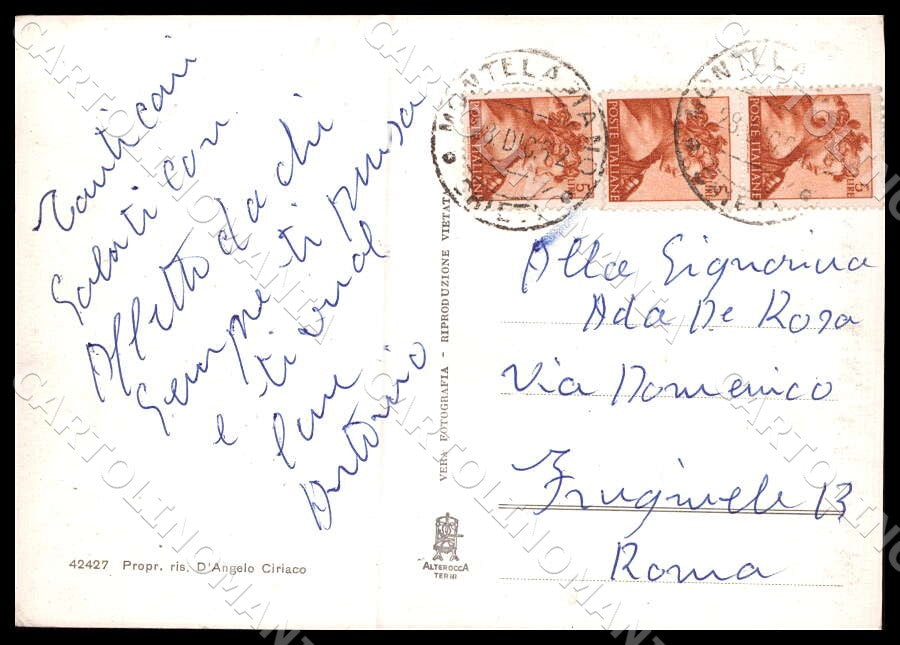 Tanti cari
Saluti con
Affetto da chi
Sempre ti pensa
e ti vuol
bene
Antonio
42427 Propr. ris. D'Angelo Ciriaco
VERA FOTOGRAFIA - RIPRODUZIONE VIETATA
ALTEROCCA
TERNI
MONTELAPIANO
28 DIC 62
CHIETI
POSTE ITALIANE
5 LIRE
POSTE ITALIANE
5 LIRE
POSTE ITALIANE
5 LIRE
MONTELA
28
CHIETI
Alla Signorina
Ada De Rosa
Via Domenico
13
Roma
CARTOLINOMANIA